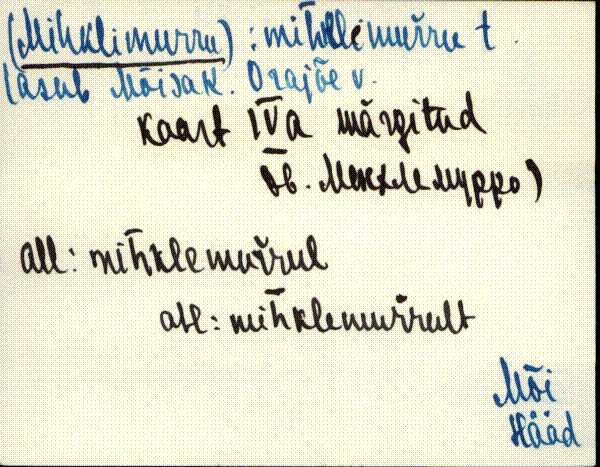 (Mihklimurru) : mih̄klemuřru t.
(asub Mõisak. Orajõe v.
kaart IVa märgitud
ōв. Меккле мурро)
all: mih̄klemuřrul
abl: mih̄klemuřrult
Mõi
Hääd